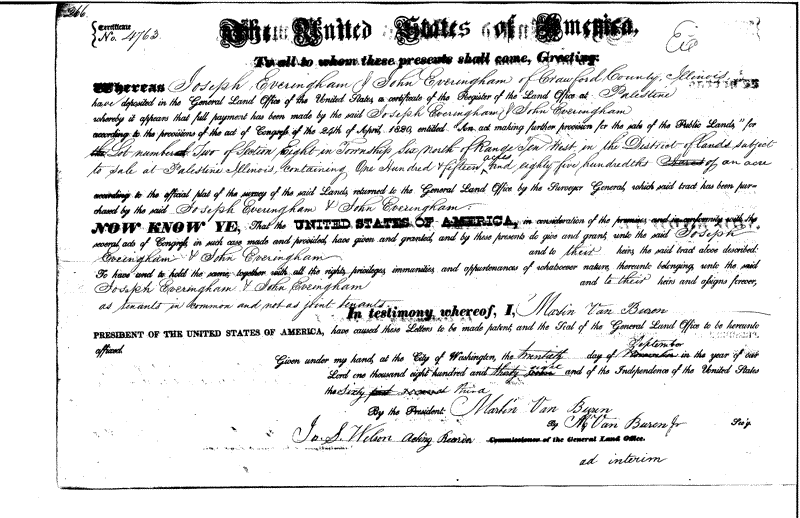 266.
Certificate
No. 4763
The United States of America,
Ex
To all to whom these presents shall come, Greeting:
Whereas Joseph Everingham & John Everingham of Crawford County, Illinois,
have deposited in the General Land Office of the United States, a certificate of the Register of the Land Office at Palestine
whereby it appears that full payment has been made by the said Joseph Everingham & John Everingham
according to the provisions of the act of Congress of the 24th of April, 1820, entitled "An act making further provision for the sale of the Public Lands," for
the Lot numbered Two of Section Eight in Township Six North of Range Ten West in the District of lands subject
to sale at Palestine Illinois, containing One Hundred & fifteen acres and eighty five hundredths of an acre
according to the official plat of the survey of the said Lands, returned to the General Land Office by the Surveyor General, which said tract has been pur-
chased by the said Joseph Everingham & John Everingham.
NOW KNOW YE, That the UNITED STATES OF AMERICA, in consideration of the premises, and in conformity with the
several acts of Congress, in such case made and provided, have given and granted, and by these presents do give and grant, unto the said Joseph
Everingham & John Everingham and to their heirs, the said tract above described:
To have and to hold the same, together with all the rights, privileges, immunities, and appurtenances of whatsoever nature, thereunto belonging, unto the said
Joseph Everingham & John Everingham and to their heirs and assigns forever,
as tenants in common and not as joint tenants.
In testimony whereof, I, Martin Van Buren
PRESIDENT OF THE UNITED STATES OF AMERICA, have caused these Letters to be made patent, and the Seal of the General Land Office to be hereunto
affixed.
Given under my hand, at the City of Washington, the twentieth day of September in the year of our
Lord one thousand eight hundred and thirty eight and of the Independence of the United States
the Sixty first second third
By the President: Martin Van Buren
By M. Van Buren Jr Sec'y.
Jo. S. Wilson Acting Recorder Commissioner of the General Land Office.
ad interim